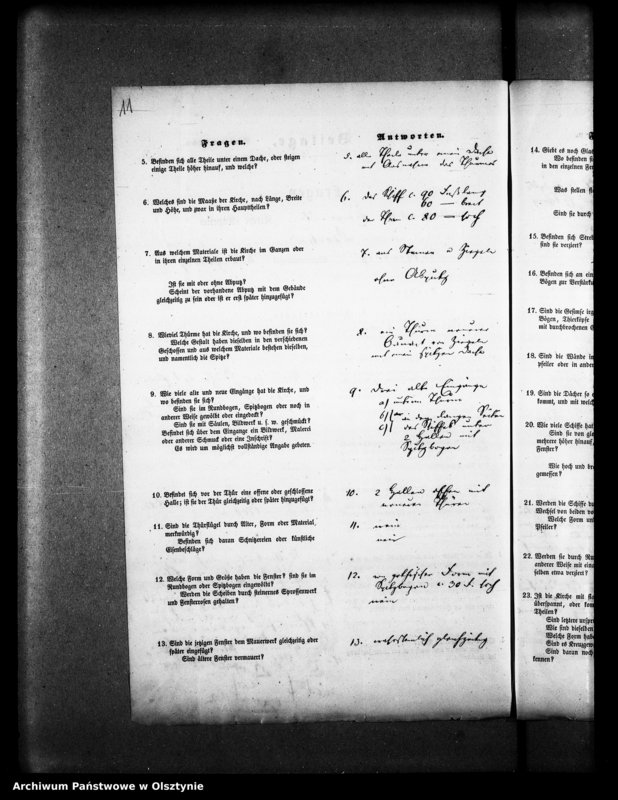 11
Fragen.
Antworten.
5. Befinden sich alle Theile unter einem Dache, oder steigen
einige Theile höher hinauf, und welche?
5. alle Theile unter einem Dache
mit Ausnahme des Thurmes
6. Welches sind die Maaße der Kirche, nach Länge, Breite
und Höhe, und zwar in ihren Haupttheilen?
6. das Schiff c. 90 Fuß lang
60 — breit
der Thurm c. 80 — hoch
7. Aus welchem Materiale ist die Kirche im Ganzen oder
in ihren einzelnen Theilen erbaut?
7. aus Steinen u Ziegeln
Ist sie mit oder ohne Abputz?
ohne Abputz
Scheint der vorhandene Abputz mit dem Gebäude
gleichzeitig zu sein oder ist er erst später hinzugefügt?
8. Wieviel Thürme hat die Kirche, und wo befinden sie sich?
Welche Gestalt haben dieselben in den verschiedenen
Geschossen und aus welchem Materiale bestehen dieselben,
und namentlich die Spitze?
8. ein Thurm neuerer
Bauart von Ziegeln
mit spitzem Dache
9. Wie viele alte und neue Eingänge hat die Kirche, und
wo befinden sie sich?
Sind sie im Rundbogen, Spitzbogen oder noch in
anderer Weise gewölbt oder eingedeckt?
Sind sie mit Säulen, Bildwerk u. s. w. geschmückt?
Befindet sich über dem Eingange ein Bildwerk, Malerei
oder anderer Schmuck oder eine Inschrift?
Es wird um möglichst vollständige Angabe gebeten.
9. drei alte Eingänge
a)
b)
c) des Schiffes unter
2 Hallen mit
Spitzbogen
10. Befindet sich vor der Thür eine offene oder geschlossene
Halle; ist sie der Thür gleichzeitig oder später hinzugefügt?
10. 2 Hallen offen mit
neueren Thüren
11. Sind die Thürflügel durch Alter, Form oder Material,
merkwürdig?
Befinden sich daran Schnitzereien oder künstliche
Eisenbeschläge?
11. nein
nein
12. Welche Form und Größe haben die Fenster? sind sie im
Rundbogen oder Spitzbogen eingewölbt?
Werden die Scheiben durch steinernes Sprossenwerk
und Fensterrosen gehalten?
12. in gothischer Form mit
Spitzbogen c. 30 F. hoch
nein
13. Sind die jetzigen Fenster dem Mauerwerk gleichzeitig oder
später eingefügt?
Sind ältere Fenster vermauert?
13. wahrscheinlich gleichzeitig
F
14. Giebt es noch
Wo befinden
in den einzelnen
Was stellen
Sind sie durch
15. Befinden sich
sind sie verziert?
16. Befinden sich an
Bögen zur
17. Sind die Gesimse
Bögen, Thierköpfe
mit durchbrochenen
18. Sind die Wände
pfeiler oder in
19. Sind die Dächer so
kommt, und mit
20. Wie viele Schiffe hat
Sind sie von
mehrere höher hinauf,
Fenster?
Wie hoch und
gemessen?
21. Werden die Schiffe
Wechsel von beiden
Welche Form und
Pfeiler?
22. Werden sie durch
anderer Weise mit
selben etwa verziert?
23. Ist die Kirche mit
überspannt, oder
Theilen?
Sind letztere
Wie sind dieselben
Welche Form
Sind es
Sind daran noch
kennen?
Archiwum Państwowe w Olsztynie